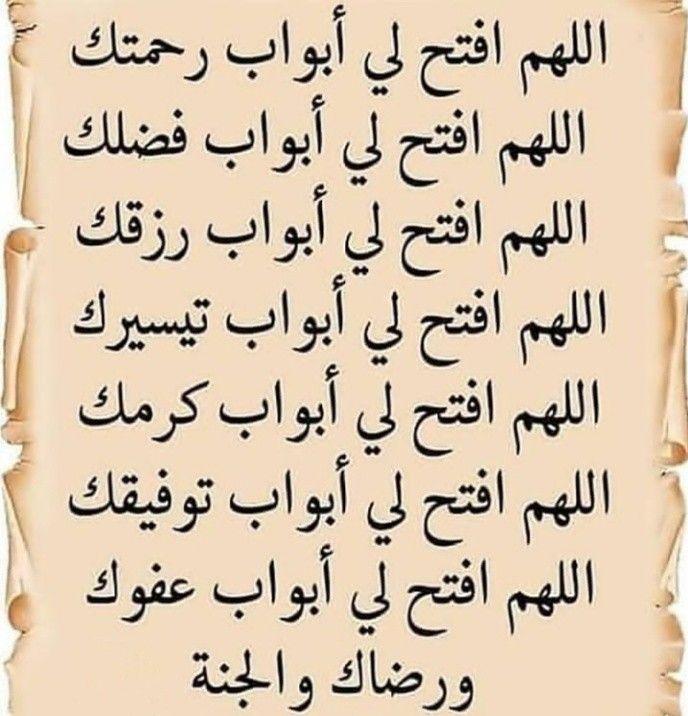 اللهم افتح لي أبواب رحمتك
اللهم افتح لي أبواب فضلك
اللهم افتح لي أبواب رزقك
اللهم افتح لي أبواب تيسيرك
اللهم افتح لي أبواب كرمك
اللهم افتح لي أبواب توفيقك
اللهم افتح لي أبواب عفوك
ورضاك والجنة